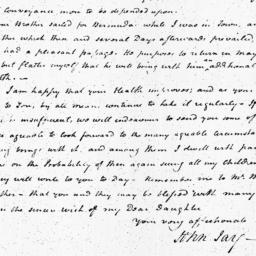 conveyance more to be depended upon.
our Brother sailed for Bermuda while I was in Town, an
ther which then and several Days afterwards prevailed,
had a pleasant passage. He purposes to return in May
but flatter myself that he will bring with him an additional
lth.—
I am happy that your Health improves; and as you
to Iron, by all means continue to take it regularly— If
t is insufficient, we will endeavour to send you some of
is agreeable to look forward to the many agreeable circumstan
ing brings with it, and among them I dwell with par
e on the Probability of then again seeing all my Children
ey will write to you to Day— Remember me to Mr. 
ther— that you and they may be blessed with many
is the sincere wish of my Dear Daughter
Your very affectionate
John Jay—